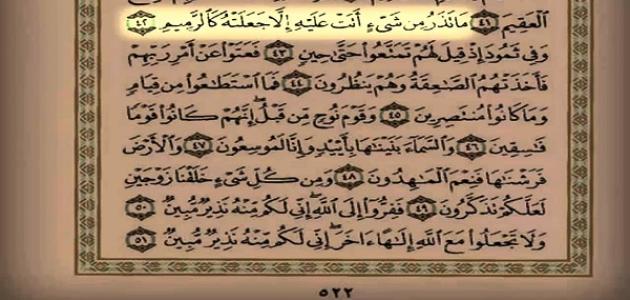 ٱلۡعَقِيمَ ٤١ مَا تَذَرُ مِن شَيۡءٍ أَتَتۡ عَلَيۡهِ إِلَّا جَعَلَتۡهُ كَٱلرَّمِيمِ ٤٢
وَفِي ثَمُودَ إِذۡ قِيلَ لَهُمۡ تَمَتَّعُواْ حَتَّىٰ حِينٍ ٤٣ فَعَتَوۡاْ عَنۡ أَمۡرِ رَبِّهِمۡ
فَأَخَذَتۡهُمُ ٱلصَّٰعِقَةُ وَهُمۡ يَنظُرُونَ ٤٤ فَمَا ٱسۡتَطَٰعُواْ مِن قِيَامٍ
وَمَا كَانُواْ مُنتَصِرِينَ ٤٥ وَقَوۡمَ نُوحٍ مِّن قَبۡلُۖ إِنَّهُمۡ كَانُواْ قَوۡمًا
فَٰسِقِينَ ٤٦ وَٱلسَّمَآءَ بَنَيۡنَٰهَا بِأَيۡيْدٍ وَإِنَّا لَمُوسِعُونَ ٤٧ وَٱلۡأَرۡضَ
فَرَشۡنَٰهَا فَنِعۡمَ ٱلۡمَٰهِدُونَ ٤٨ وَمِن كُلِّ شَيۡءٍ خَلَقۡنَا زَوۡجَيۡنِ
لَعَلَّكُمۡ تَذَكَّرُونَ ٤٩ فَفِرُّوٓاْ إِلَى ٱللَّهِۖ إِنِّي لَكُم مِّنۡهُ نَذِيرٌ مُّبِينٌ ٥٠
وَلَا تَجۡعَلُواْ مَعَ ٱللَّهِ إِلَٰهًا ءَاخَرَۖ إِنِّي لَكُم مِّنۡهُ نَذِيرٌ مُّبِينٌ ٥١
٥٢٢